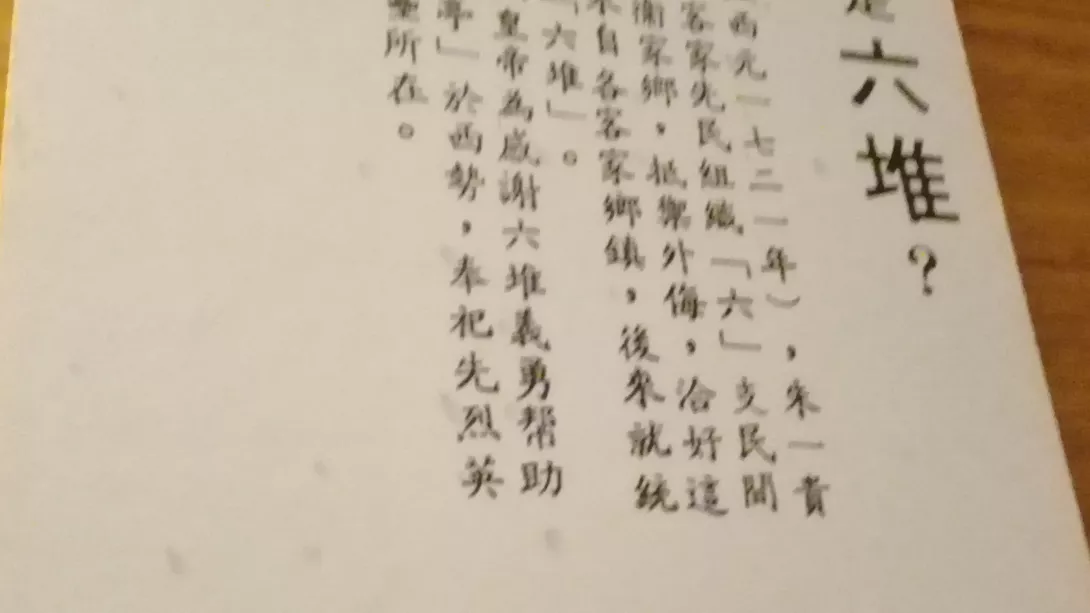 是六堆？
西元一七二一年），朱一貴
客家先民組織「六」支民間
衛家鄉，抵禦外侮，洽好這
來自各客家鄉鎮，後來就統
「六堆」。
皇帝為感謝六堆義勇幫助
亭」於西勢，奉祀先烈英
靈所在。